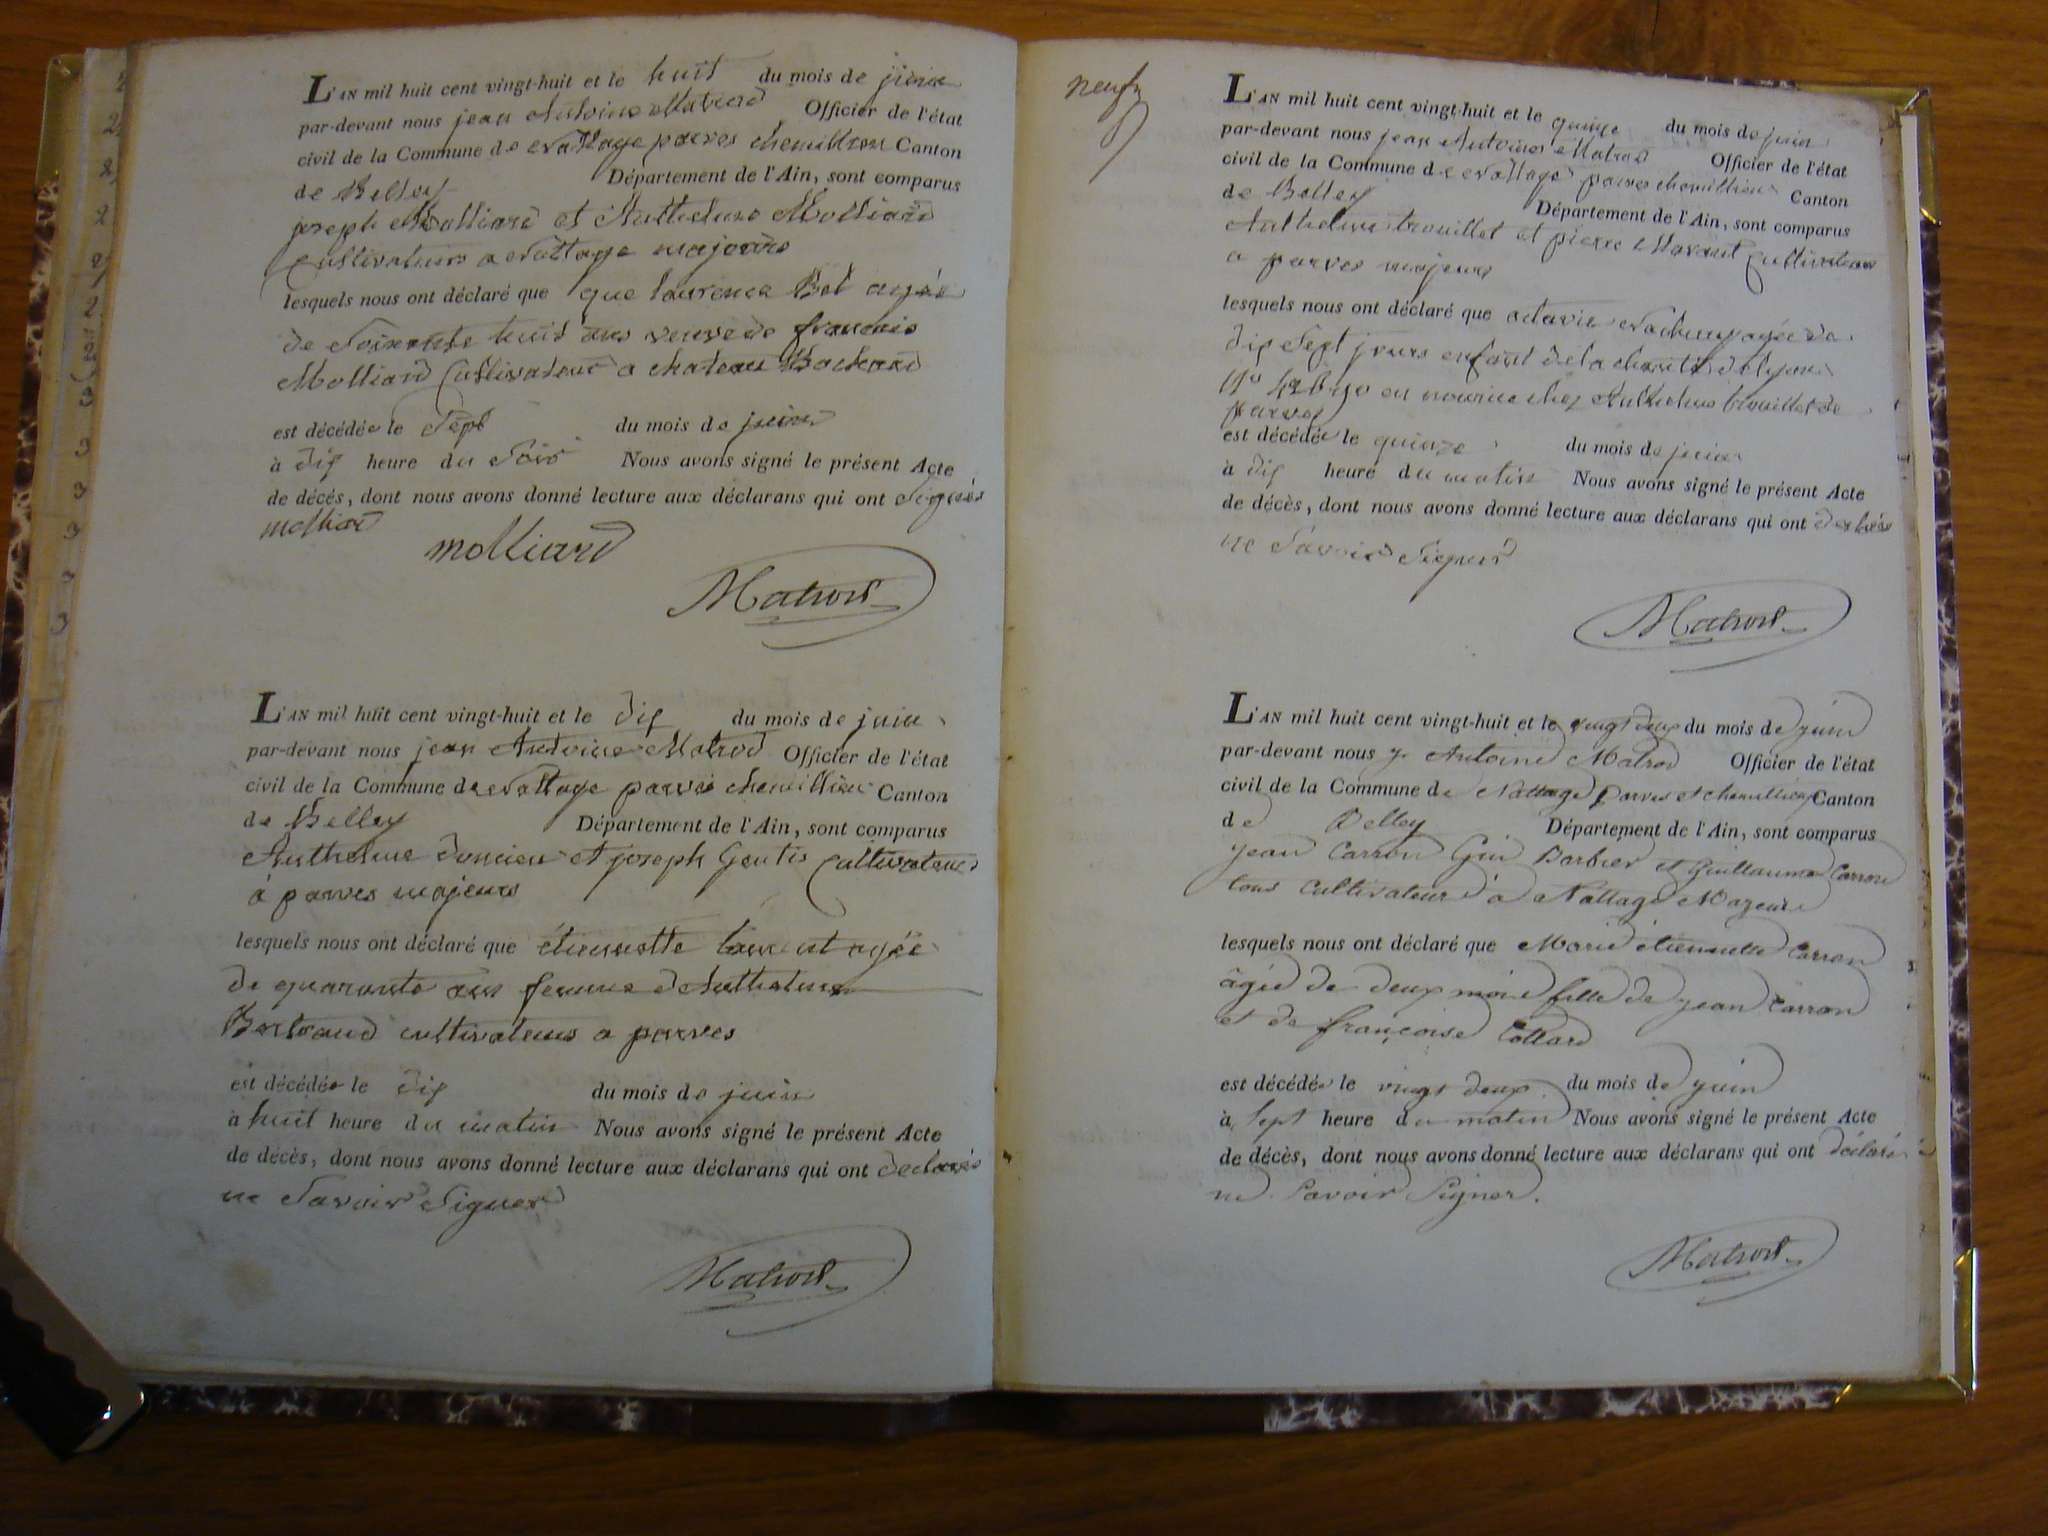 L'AN mil huit cent vingt-huit et le huit du mois de juin
par-devant nous jean Antoine Matrod Officier de l'état
civil de la Commune de Nattage parves chemillieu Canton
de Belley Département de l'Ain, sont comparus
joseph Molliard et Anthelme Molliard
Cultivateurs a Nattage majeurs
lesquels nous ont déclaré que que laurence Bel agée
de Soixante huit ans veuve de françois
Molliard Cultivateur a chateau Bochard
est décédée le Sept du mois de juin
à dix heure du Soir Nous avons signé le présent Acte
de décès, dont nous avons donné lecture aux déclarans qui ont Signés
molliard
molliard
Matrod
L'AN mil huit cent vingt-huit et le dix du mois de juin
par-devant nous jean Antoine Matrod Officier de l'état
civil de la Commune de Nattage parves chemillieu Canton
de Belley Département de l'Ain, sont comparus
Anthelme et joseph Gentis Cultivateurs
à parves majeurs
lesquels nous ont déclaré que étiennette agée
de quarante ans femme d'Anthelme
Bertrand cultivateurs a parves
est décédée le dix du mois de juin
à huit heure du matin Nous avons signé le présent Acte
de décès, dont nous avons donné lecture aux déclarans qui ont declarés
ne Savoir Signer
Matrod
neuf
L'AN mil huit cent vingt-huit et le quinze du mois de juin
par-devant nous jean Antoine Matrod Officier de l'état
civil de la Commune de Nattage parves chemillieu Canton
de Belley Département de l'Ain, sont comparus
Anthelme trouillet et pierre Cultivateurs
a parves majeurs
lesquels nous ont déclaré que octavie agée de
dix Sept jours enfant de la charité de lyon
en nourice chez Anthelme trouillet de
parves
est décédée le quinze du mois de juin
à dix heure du matin Nous avons signé le présent Acte
de décès, dont nous avons donné lecture aux déclarans qui ont declarés
ne Savoir Signer
Matrod
L'AN mil huit cent vingt-huit et le vingt deux du mois de juin
par-devant nous j. Antoine Matrod Officier de l'état
civil de la Commune de Nattage Parves et chemillieu Canton
de Belley Département de l'Ain, sont comparus
jean Carron Barbier et Guillaume Carron
tous cultivateur à Nattage Mageur
lesquels nous ont déclaré que Marie étiennette Carron
âgée de deux mois fille de jean Carron
et de françoise Collard
est décédée le vingt deux du mois de juin
à Sept heure du matin Nous avons signé le présent Acte
de décès, dont nous avons donné lecture aux déclarans qui ont déclaré
ne Savoir Signer.
Matrod